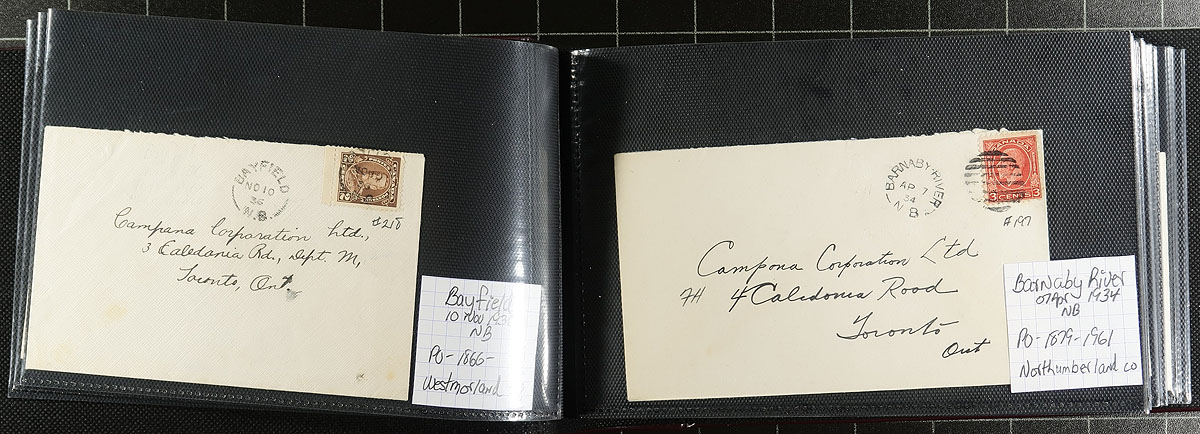 BAYFIELD
NO 10
36
N.B.
2
#218
Campana Corporation Ltd.,
3 Caledania Rd., Dept. M,
Toronto, Ont.
Bayfield
10 Nov 193
NB
PO - 1866 -
Westmorland
BARNABY RIVER
AP 7
34
N B
CANADA
3 CENTS 3
#197
Campona Corporation Ltd
4 Caledonia Road
Toronto
Ont
Barnaby River
07 Apr 1934
NB
PO - 1879 - 1961
Northumberland co